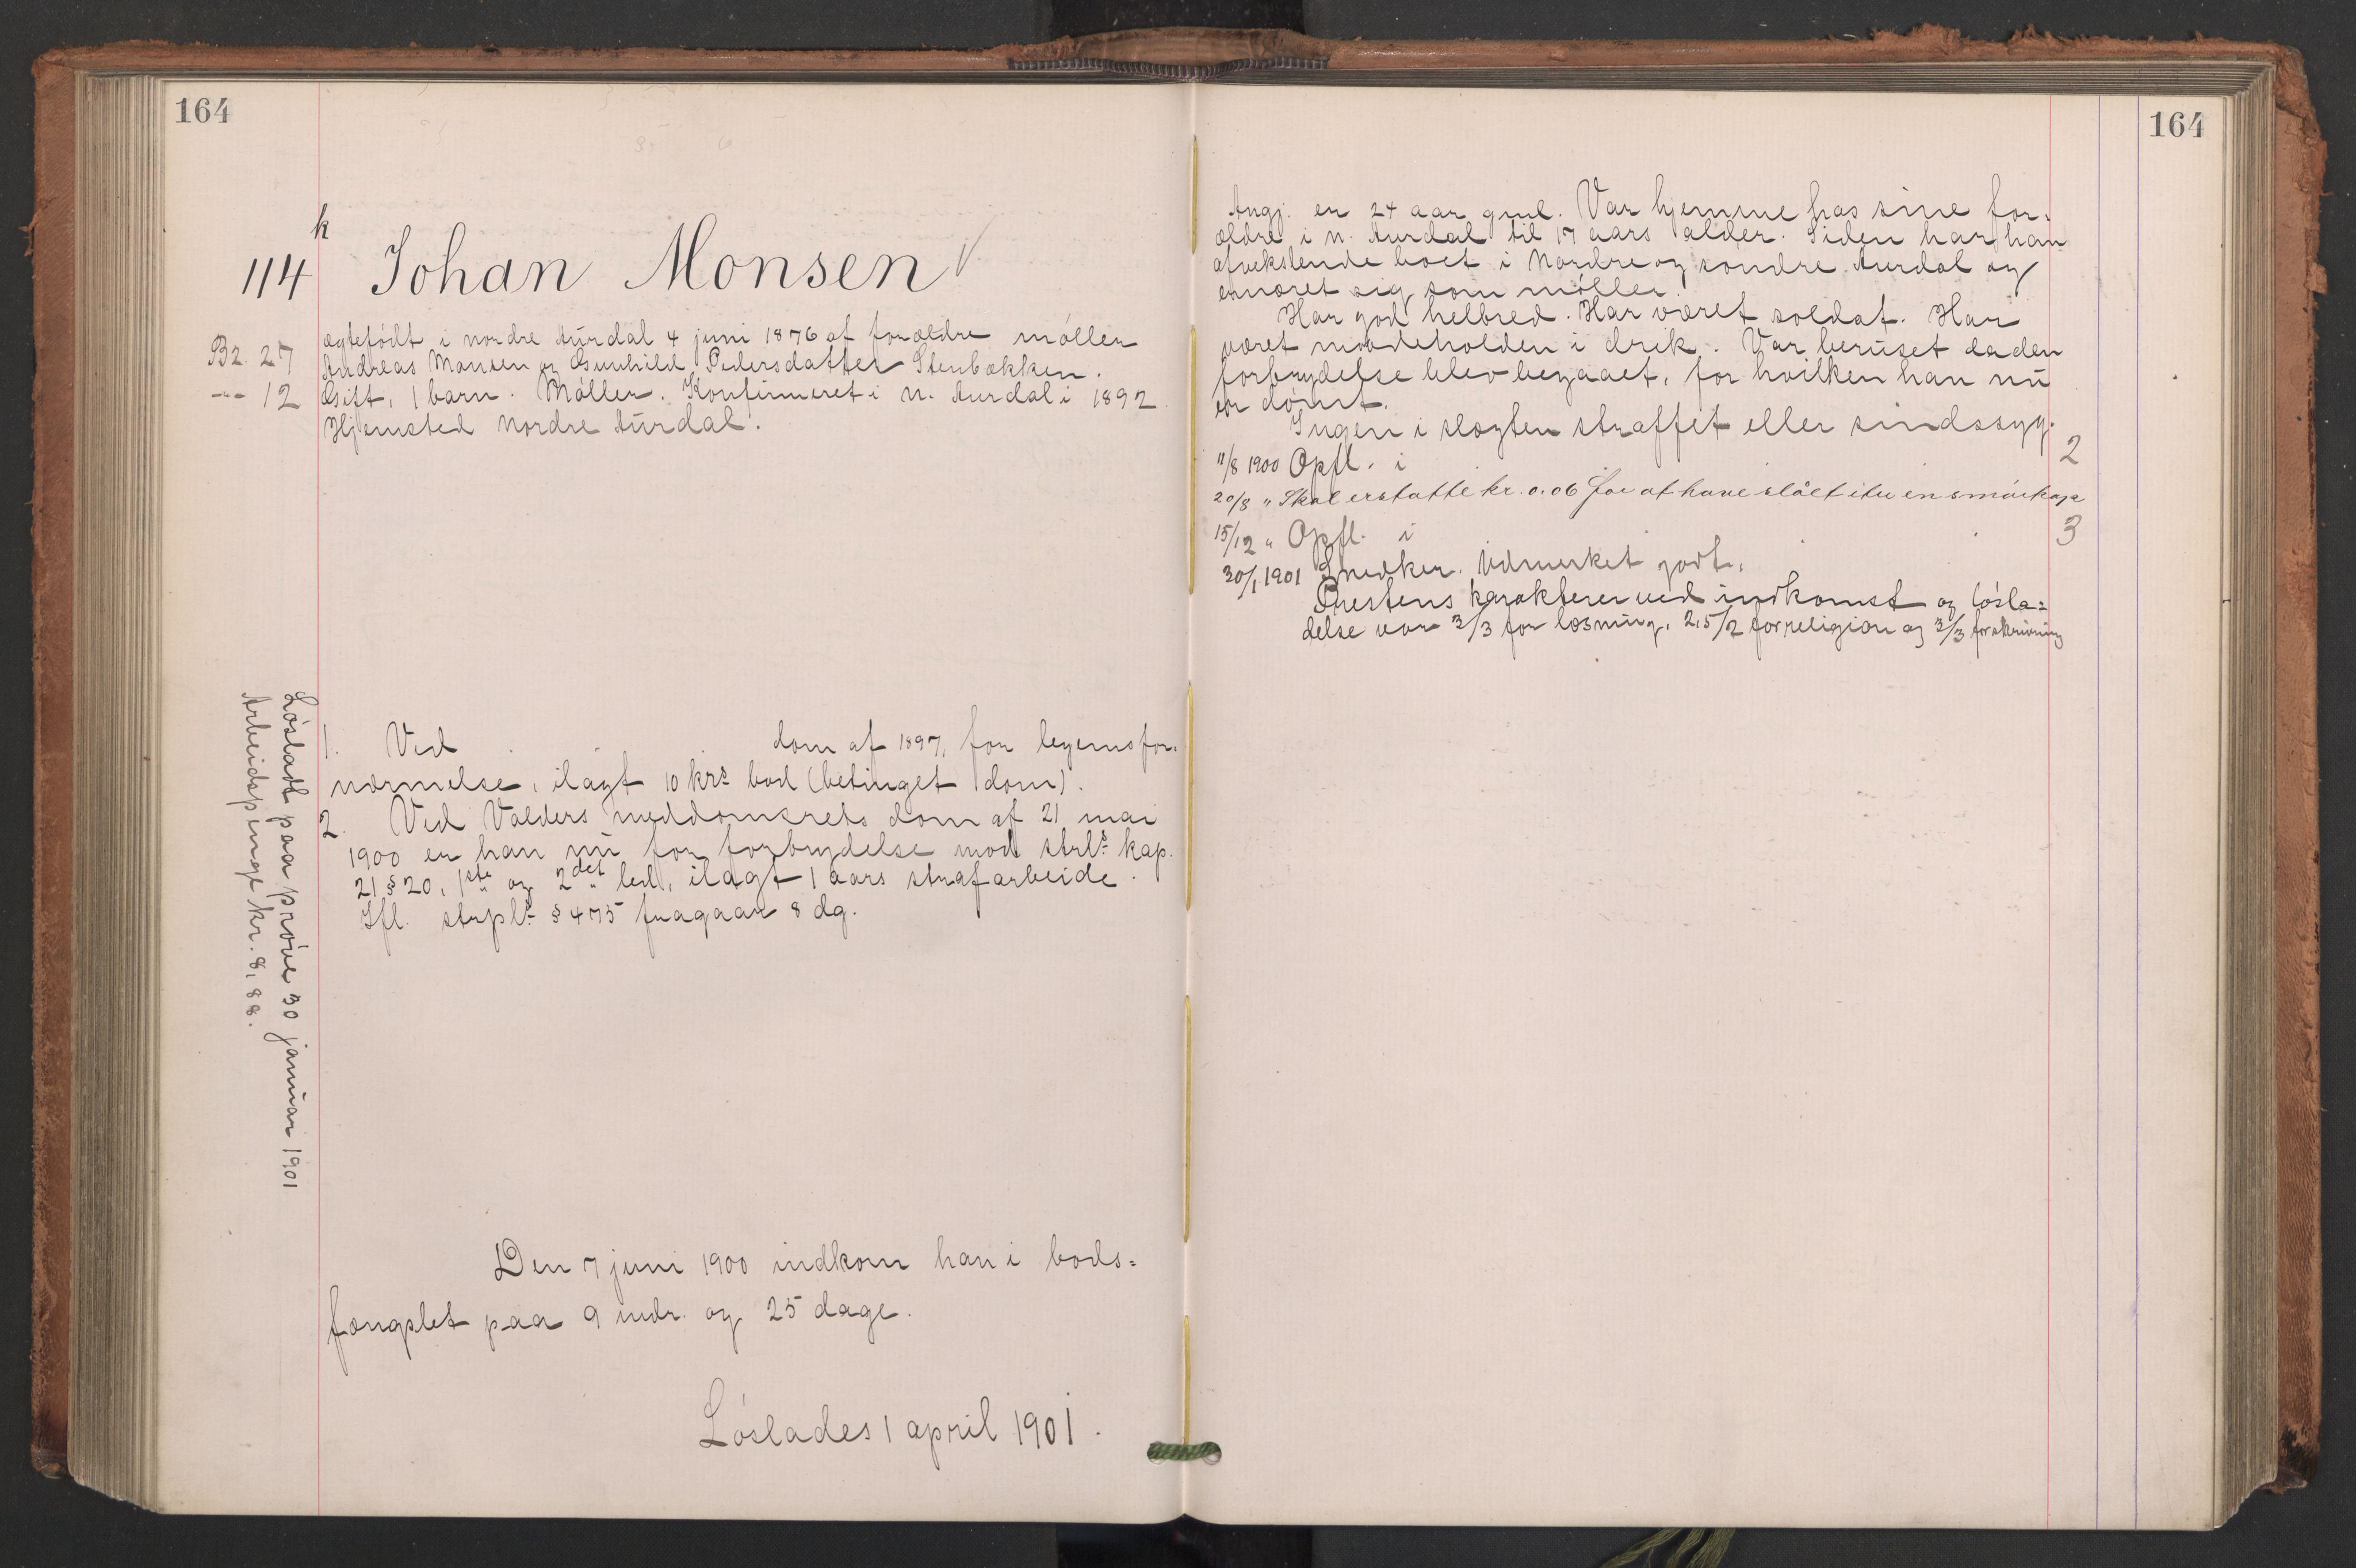 164
k
114 Johan Monsen √
Bz. 27
-"- 12
ægtefödt i nordre Aurdal 4 juni 1876 af forældre möller
Andreas Monsen og Gunhild Pedersdatter Stenbækken.
Gift, 1 barn. Möller. Konfirmeret i N. Aurdal i 1892.
Hjemsted Nordre Aurdal.
Lösladt paa pröve 30 januar 1901
Arbeidspenge kr. 8,88.
1. Ved dom af 1897, for legemsfor-
nærmelse, ilagt 10 krs bod (betinget dom).
2. Ved Valders meddomsrets dom af 21 mai
1900 er han nu for forbrydelse mod strl: kap.
21 § 20, 1ste og 2det led, ilagt 1 aars strafarbeide.
Ifl. strpl: § 475 fragaar 8 dg.
Den 7 juni 1900 indkom han i bods=
fængslet paa 9 mdr. og 25 dage.
Löslades 1 april 1901.
164
Angj. er 24 aar gml. Var hjemme hos sine for-
ældre i N. Aurdal til 17 aars alder. Siden har han
afvekslende boet i Nordre og söndre Aurdal og
ernæret sig som möller.
Har god helbred. Har været soldat. Har
været maadeholden i drik. Var beruset da den
forbrydelse blev begaaet, for hvilken han nu
er dömt.
Ingen i slægten straffet eller sindssyg.
11/8 1900 Opfl. i 2
20/8 " Skal erstatte kr. 0.06 for at have slået itu en smörkop
15/12 " Opfl. i 3
30/1 1901 Snedker. Udmerket godt.
Prestens karakterer ved indkomst og lösla=
delse var 3/3 for læsning, 2,5/2 for religion og 3/3 for skrivning